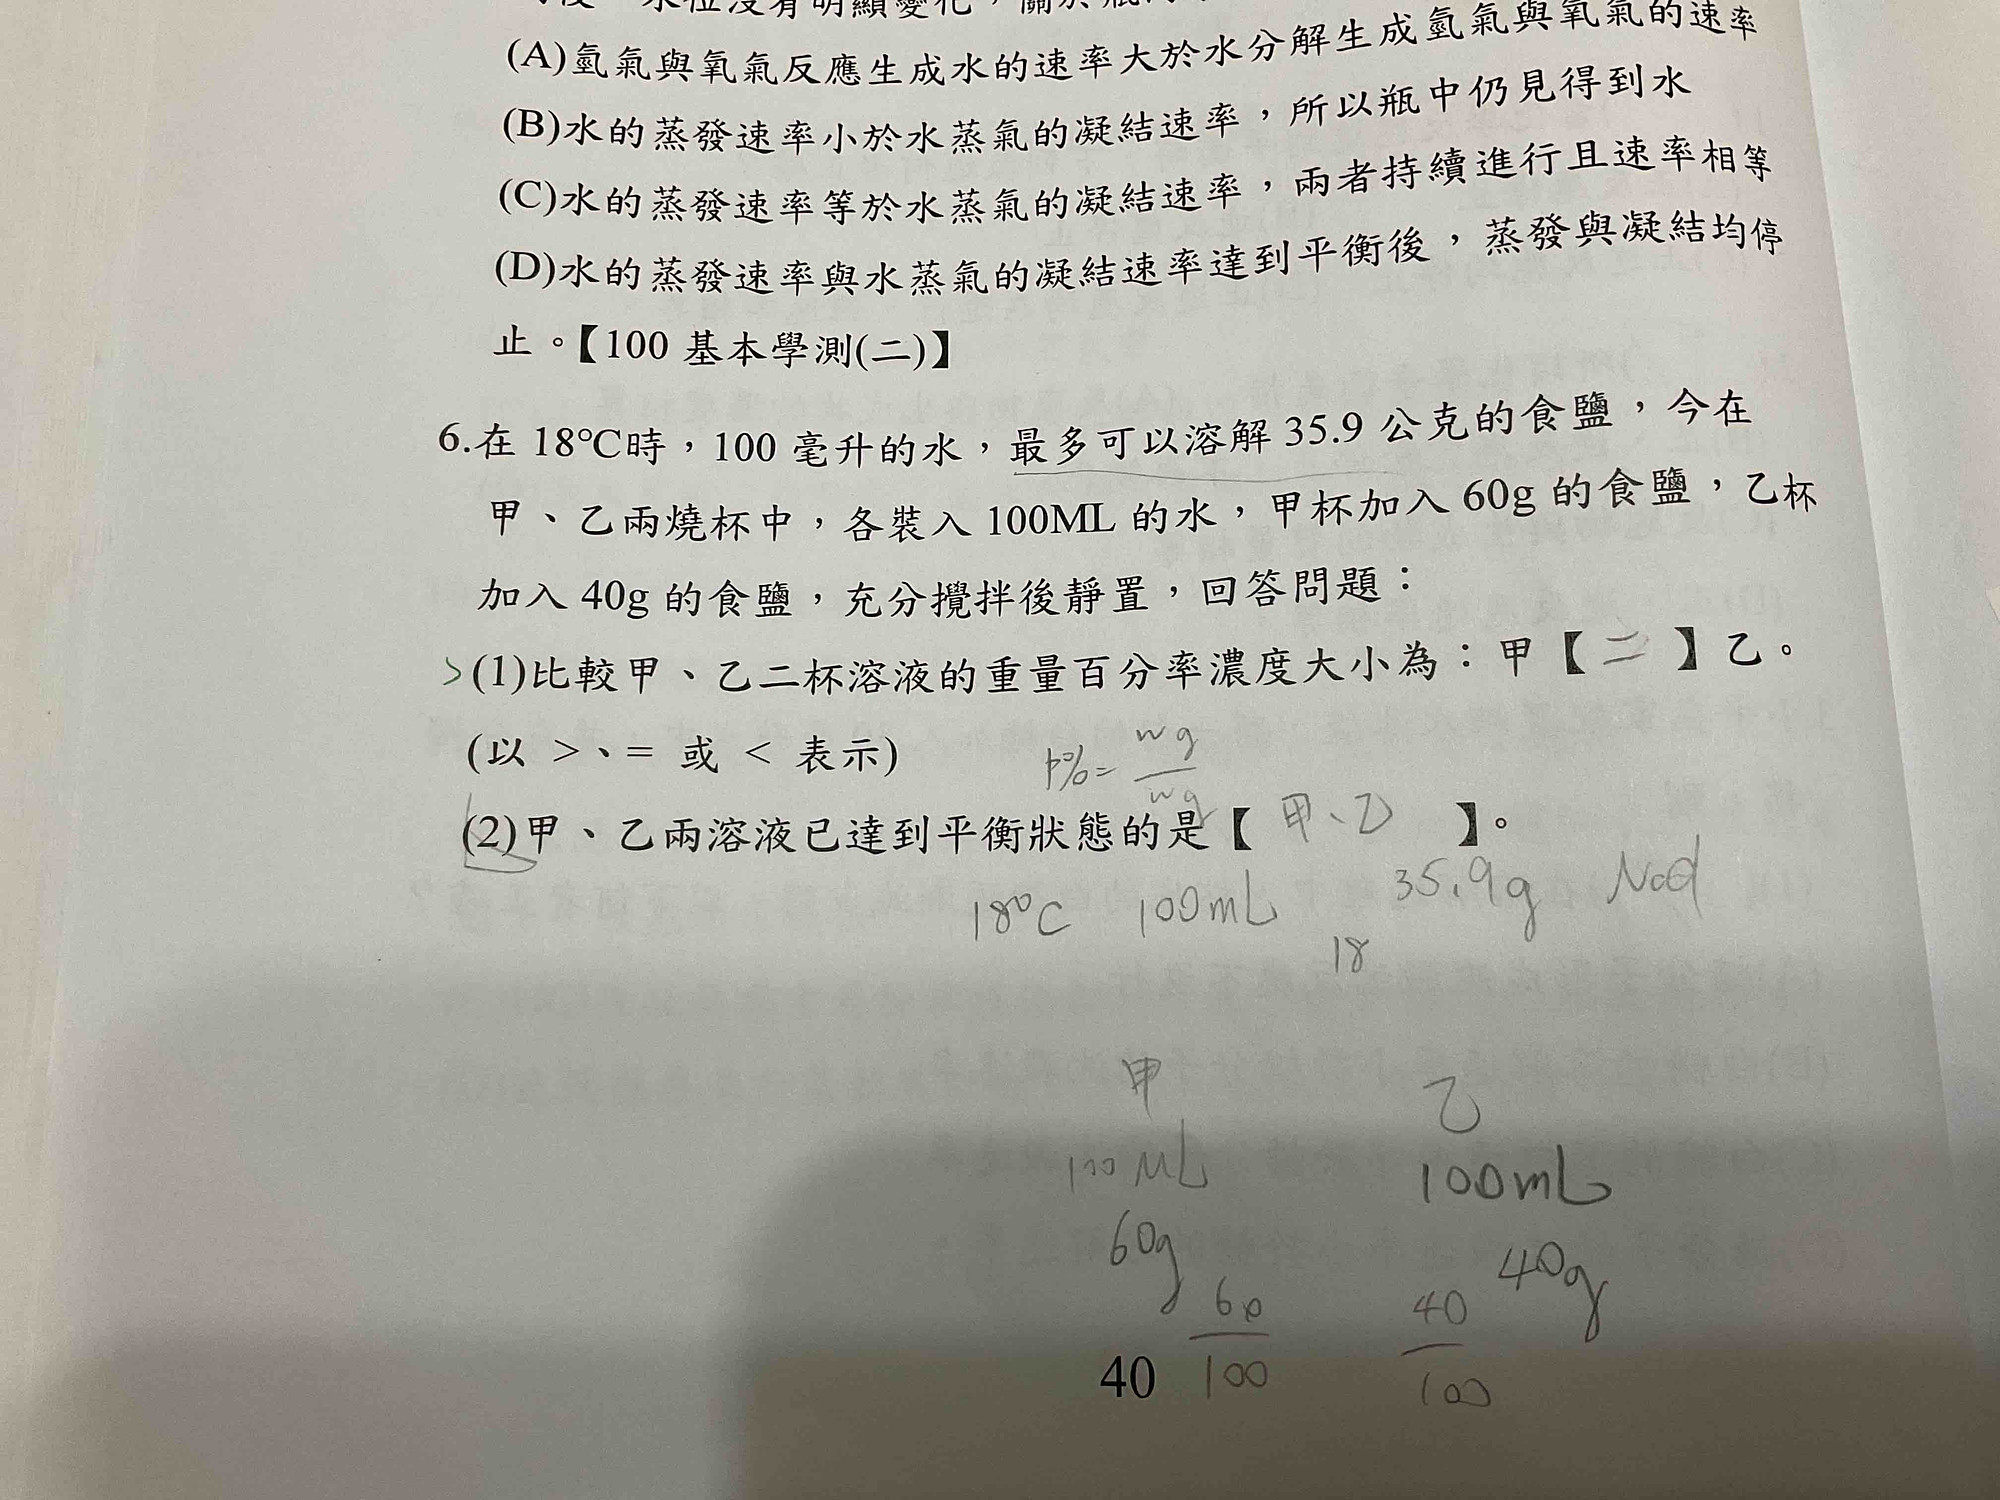 水位沒有明顯變化，關於瓶
(A)氫氣與氧氣反應生成水的速率大於水分解生成氫氣與氧氣的速率
(B)水的蒸發速率小於水蒸氣的凝結速率，所以瓶中仍見得到水
(C)水的蒸發速率等於水蒸氣的凝結速率，兩者持續進行且速率相等
(D)水的蒸發速率與水蒸氣的凝結速率達到平衡後，蒸發與凝結均停
止。【100 基本學測(二)】
6.在 18℃時，100 毫升的水，最多可以溶解 35.9 公克的食鹽，今在
甲、乙兩燒杯中，各裝入 100ML 的水，甲杯加入 60g 的食鹽，乙杯
加入 40g 的食鹽，充分攪拌後靜置，回答問題：
>(1)比較甲、乙二杯溶液的重量百分率濃度大小為：甲【 = 】乙。
(以 >、= 或 < 表示)
p%= wg
wg
(2)甲、乙兩溶液已達到平衡狀態的是【 甲、乙 】。
18°C 100mL 35.9g NaCl
18
甲 乙
100ML 100mL
60g 40g
60 40
100 100
40